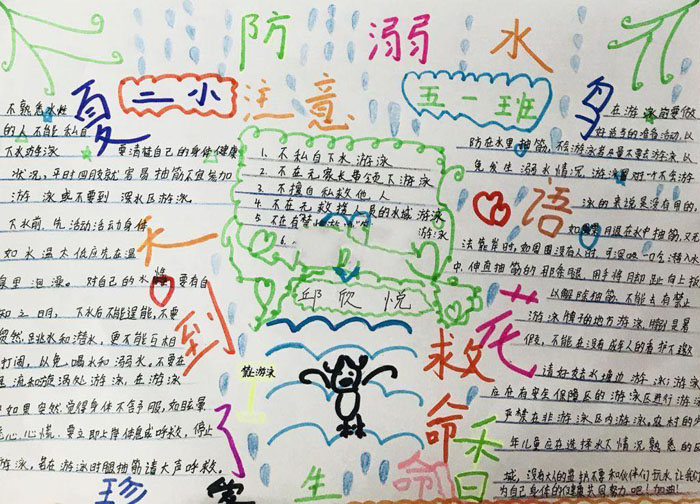 防溺水
二小
五一班
注意
夏
天
到
了
鸟
语
花
香
珍
生
命
救
命
1. 不私自下水游泳
2. 不在无家长带领下游泳
3. 不擅自私救他人
4. 不在无救援人员的水域游泳
5. 不在有禁
游泳
6.
邱欣悦
能游泳
不熟悉水性
的人不能私自
下水游泳
要清楚自己的身体健康
状况，平时四肢就容易抽筋不宜参加
游泳或不要到深水区游泳。
下水前，先活动活动身体
如水温太低应先在温
泉里洄澡。对自己的水性要有自
知之明，下水后不能逞能，不要
贸然跳水和潜水，更不能与相
打闹，以免喝水和溺水。不要在
急流和漩涡处游泳，在游泳
中如果突然觉得身体不舒服，如眩晕
恶心、心慌，要立即上岸休息或呼救，停止
游泳，若在游泳时腿抽筋请大声呼救。
在游泳前要做
好适当的准备活动，以
防在水里抽筋，
免发生溺水情况
泳的来说是没有用的。
如果月退在水中抽筋，又无
法靠岸时，如周围没有人时，可深吸一口气潜入水
中，伸直抽筋的那条腿，用手将脚趾向上扳
以解除抽筋，不能去有禁
游泳牌子的地方游泳，特别是暑
假，不能在没有成年人的看护下进
请好好去水塘边游泳；游泳
应在有安全保障区的游泳区进行游泳
严禁在非游泳区内游泳，农村的少
年儿童应在选择水下情况熟悉的
域，没有大人的监护不要和伙伴们玩水让我们
为自己身体的健康共同努力吧！加油！